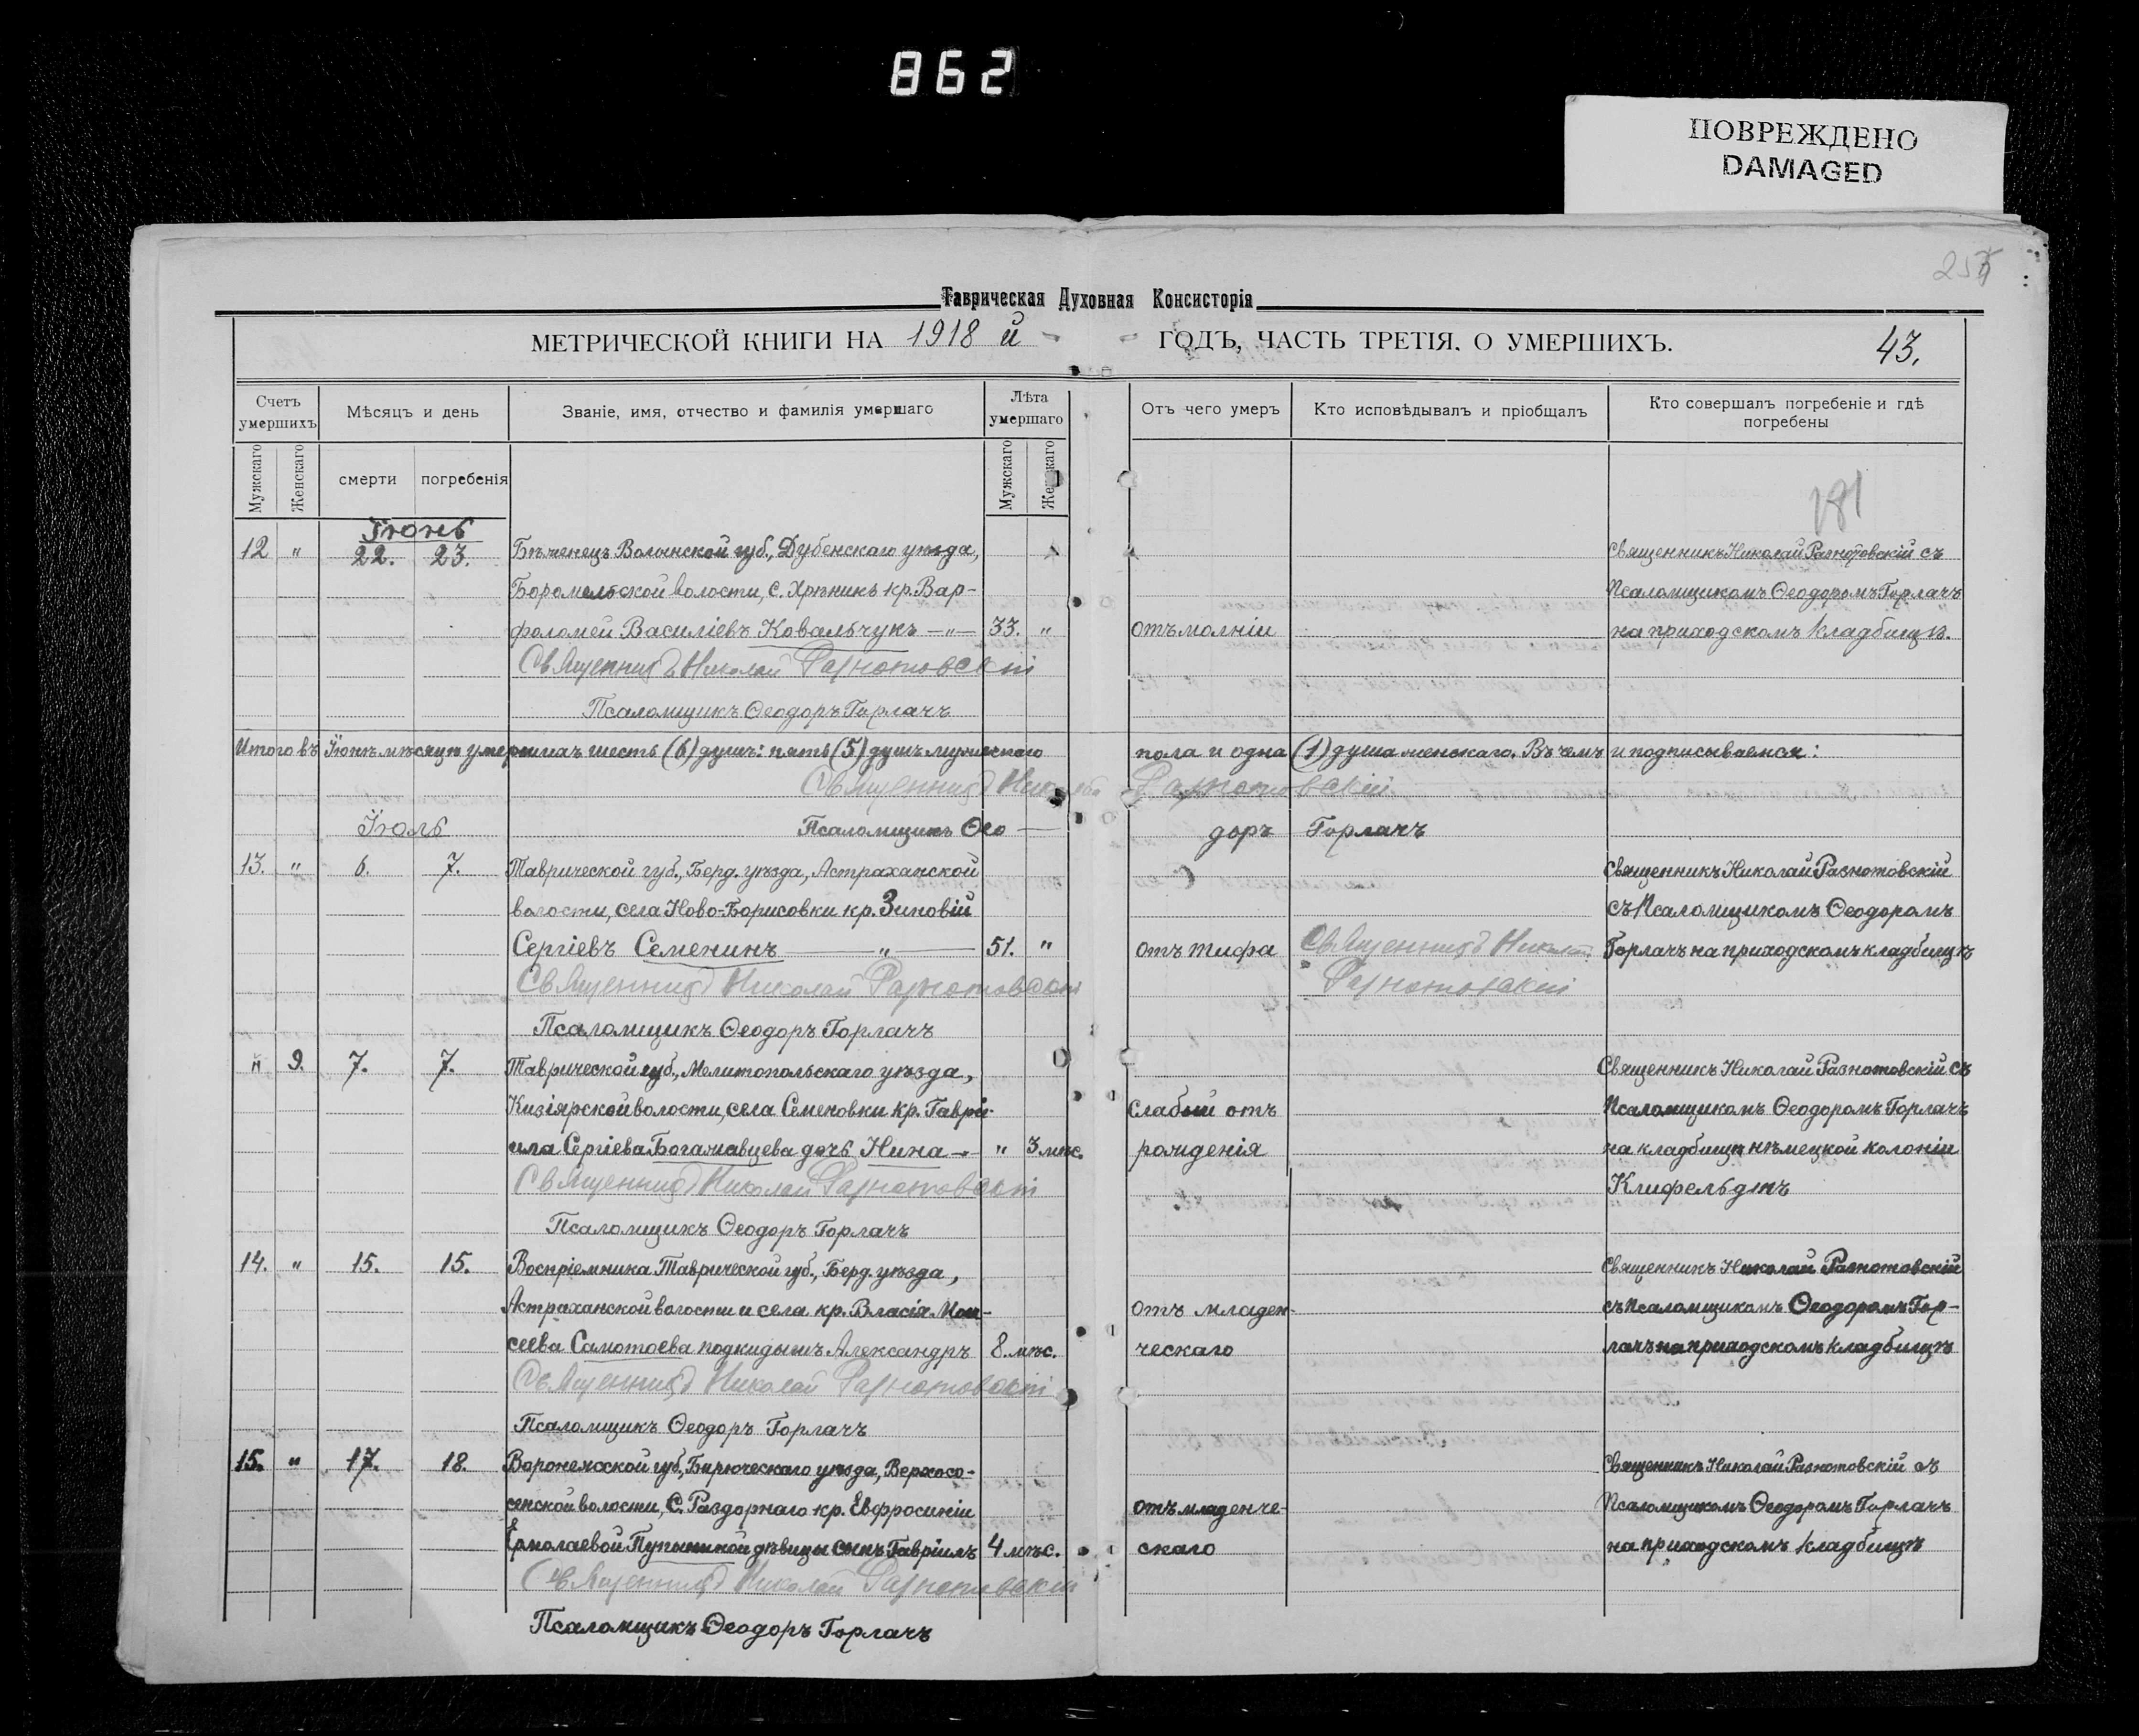 862
ПОВРЕЖДЕНО
DAMAGED
Таврическая Духовная Консисторія
МЕТРИЧЕСКОЙ КНИГИ НА 1918 й ГОДЪ, ЧАСТЬ ТРЕТІЯ, О УМЕРШИХЪ. 43.
Счетъ умершихъ
Мѣсяцъ и день
Званіе, имя, отчество и фамилія умершаго
Лѣта умершаго
Отъ чего умеръ
Кто исповѣдывалъ и пріобщалъ
Кто совершалъ погребеніе и гдѣ погребены
Мужскаго
Женскаго
смерти
погребенія
Мужскаго
Женскаго
181
Іюнь
12 " 22. 23. Бѣженецъ Волынской губ., Дубенскаго уѣзда, Священникъ Николай Разнотовскій съ
Боромельской волости, с. Хрѣникъ кр. Вар- Псаломщикомъ Ѳеодоромъ Горлачъ
фоломей Василіевъ Ковальчукъ —"— 33. " отъ молніи на приходскомъ кладбищѣ.
Священникъ Николай Разнотовскій
Псаломщикъ Ѳеодоръ Горлачъ
Итого въ Іюнѣ мѣсяцѣ умершихъ шесть (6) душъ: пять (5) душъ мужскаго пола и одна (1) душа женскаго. Въ чемъ и подписываемся:
Священникъ Николай Разнотовскій
Іюль Псаломщикъ Ѳео— доръ Горлачъ
13. " 6. 7. Таврической губ., Берд. уѣзда, Астраханской Священникъ Николай Разнотовскій
волости, села Ново-Борисовки кр. Зиновій съ Псаломщикомъ Ѳеодоромъ
Сергіевъ Семенинъ —"— 51. " отъ тифа Священникъ Николай Горлачъ на приходскомъ кладбищѣ
Священникъ Николай Разнотовскій Разнотовскій
Псаломщикъ Ѳеодоръ Горлачъ
" 9. 7. 7. Таврической губ., Мелитопольскаго уѣзда, Священникъ Николай Разнотовскій съ
Кизіярской волости, села Семеновки кр. Гаврі- слабый отъ Псаломщикомъ Ѳеодоромъ Горлачъ
ила Сергіева Богамавцева дочь Нина —"— " 3 мѣс. рожденія на кладбищѣ нѣмецкой колоніи
Священникъ Николай Разнотовскій Клифельдтъ
Псаломщикъ Ѳеодоръ Горлачъ
14. " 15. 15. Воспріемника Таврической губ., Берд. уѣзда, Священникъ Николай Разнотовскій
Астраханской волости и села кр. Власія Мои- отъ младен- съ Псаломщикомъ Ѳеодоромъ Гор-
сеева Самотоева подкидышъ Александръ 8. мѣс. ческаго лачъ на приходскомъ кладбищѣ
Священникъ Николай Разнотовскій
Псаломщикъ Ѳеодоръ Горлачъ
15. " 17. 18. Воронежской губ., Бирюческаго уѣзда, Верхосо- Священникъ Николай Разнотовскій съ
сенской волости, С. Раздорнаго кр. Евфросиніи отъ младенче- Псаломщикомъ Ѳеодоромъ Горлачъ
Ермолаевой дѣвицы сынъ Гавріилъ 4 мѣс. скаго на приходскомъ кладбищѣ
Священникъ Николай Разнотовскій
Псаломщикъ Ѳеодоръ Горлачъ